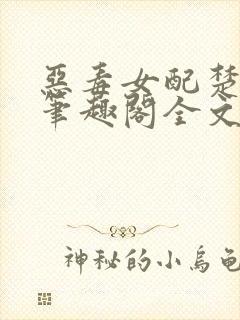 惡毒女配楚
筆趣閣全文
神秘的小烏龜